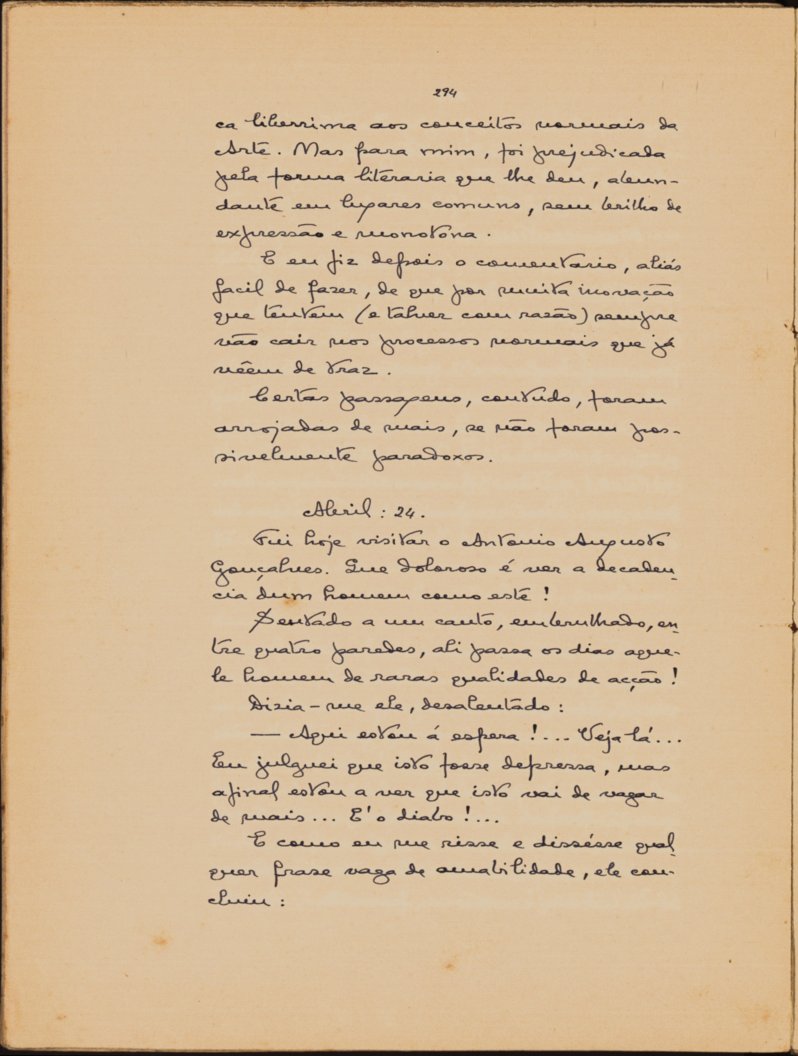 294
ca liberrima aos conceitos normais da
Arte. Mas para mim, foi prejudicada
pela forma literaria que lhe deu, abun-
dante em lugares comuns, sem brilho de
expressão e monotona.
E eu fiz depois o comentario, aliás
facil de fazer, de que por muita inovação
que tentem (e talvez com razão) sempre
vão cair nos processos normais que já
vêem de traz.
Certas passagens, contudo, foram
arrojadas de mais, se não foram pos-
sivelmente paradoxos.
Abril: 24.
Fui hoje visitar o Antonio Augusto
Gonçalves. Que doloroso é ver a decaden-
cia dum homem como este!
Sentado a um canto, embrulhado, en-
tre quatro paredes, ali passa os dias aque-
le homem de raras qualidades de acção!
Dizia-me ele, desalentado:
— Aqui estou á espera!... Veja lá...
Eu julguei que isto fosse depressa, mas
afinal estou a ver que isto vai de vagar
de mais... E' o diabo!...
E como eu me risse e dissésse qual-
quer frase vaga de amabilidade, ele con-
cluiu: